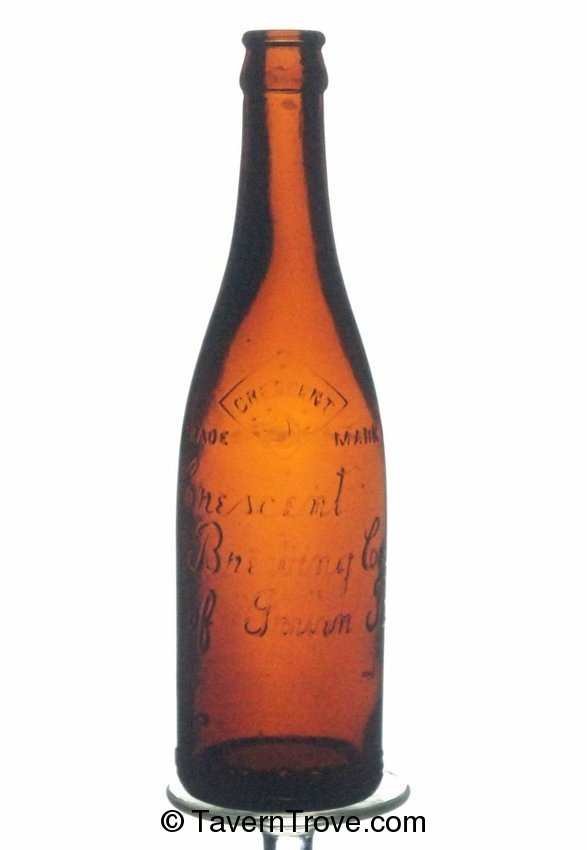 CRESCENT
TRADE MARK
Crescent
Brewing Co
of Irwin
© TavernTrove.com